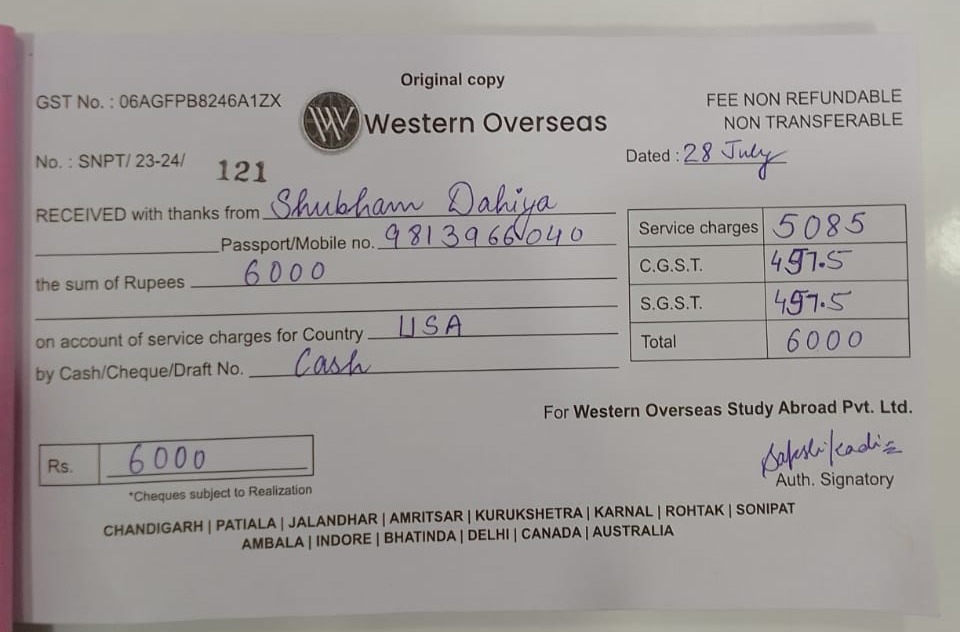 Original copy
GST No. : 06AGFPB8246A1ZX
Western Overseas
FEE NON REFUNDABLE
NON TRANSFERABLE
No. : SNPT/ 23-24/ 121
Dated : 28 July
RECEIVED with thanks from Shubham Dahiya
Passport/Mobile no. 9813966040
the sum of Rupees 6000
on account of service charges for Country USA
by Cash/Cheque/Draft No. Cash
Service charges 5085
C.G.S.T. 457.5
S.G.S.T. 457.5
Total 6000
For Western Overseas Study Abroad Pvt. Ltd.
Rs. 6000
Auth. Signatory
*Cheques subject to Realization
CHANDIGARH | PATIALA | JALANDHAR | AMRITSAR | KURUKSHETRA | KARNAL | ROHTAK | SONIPAT
AMBALA | INDORE | BHATINDA | DELHI | CANADA | AUSTRALIA